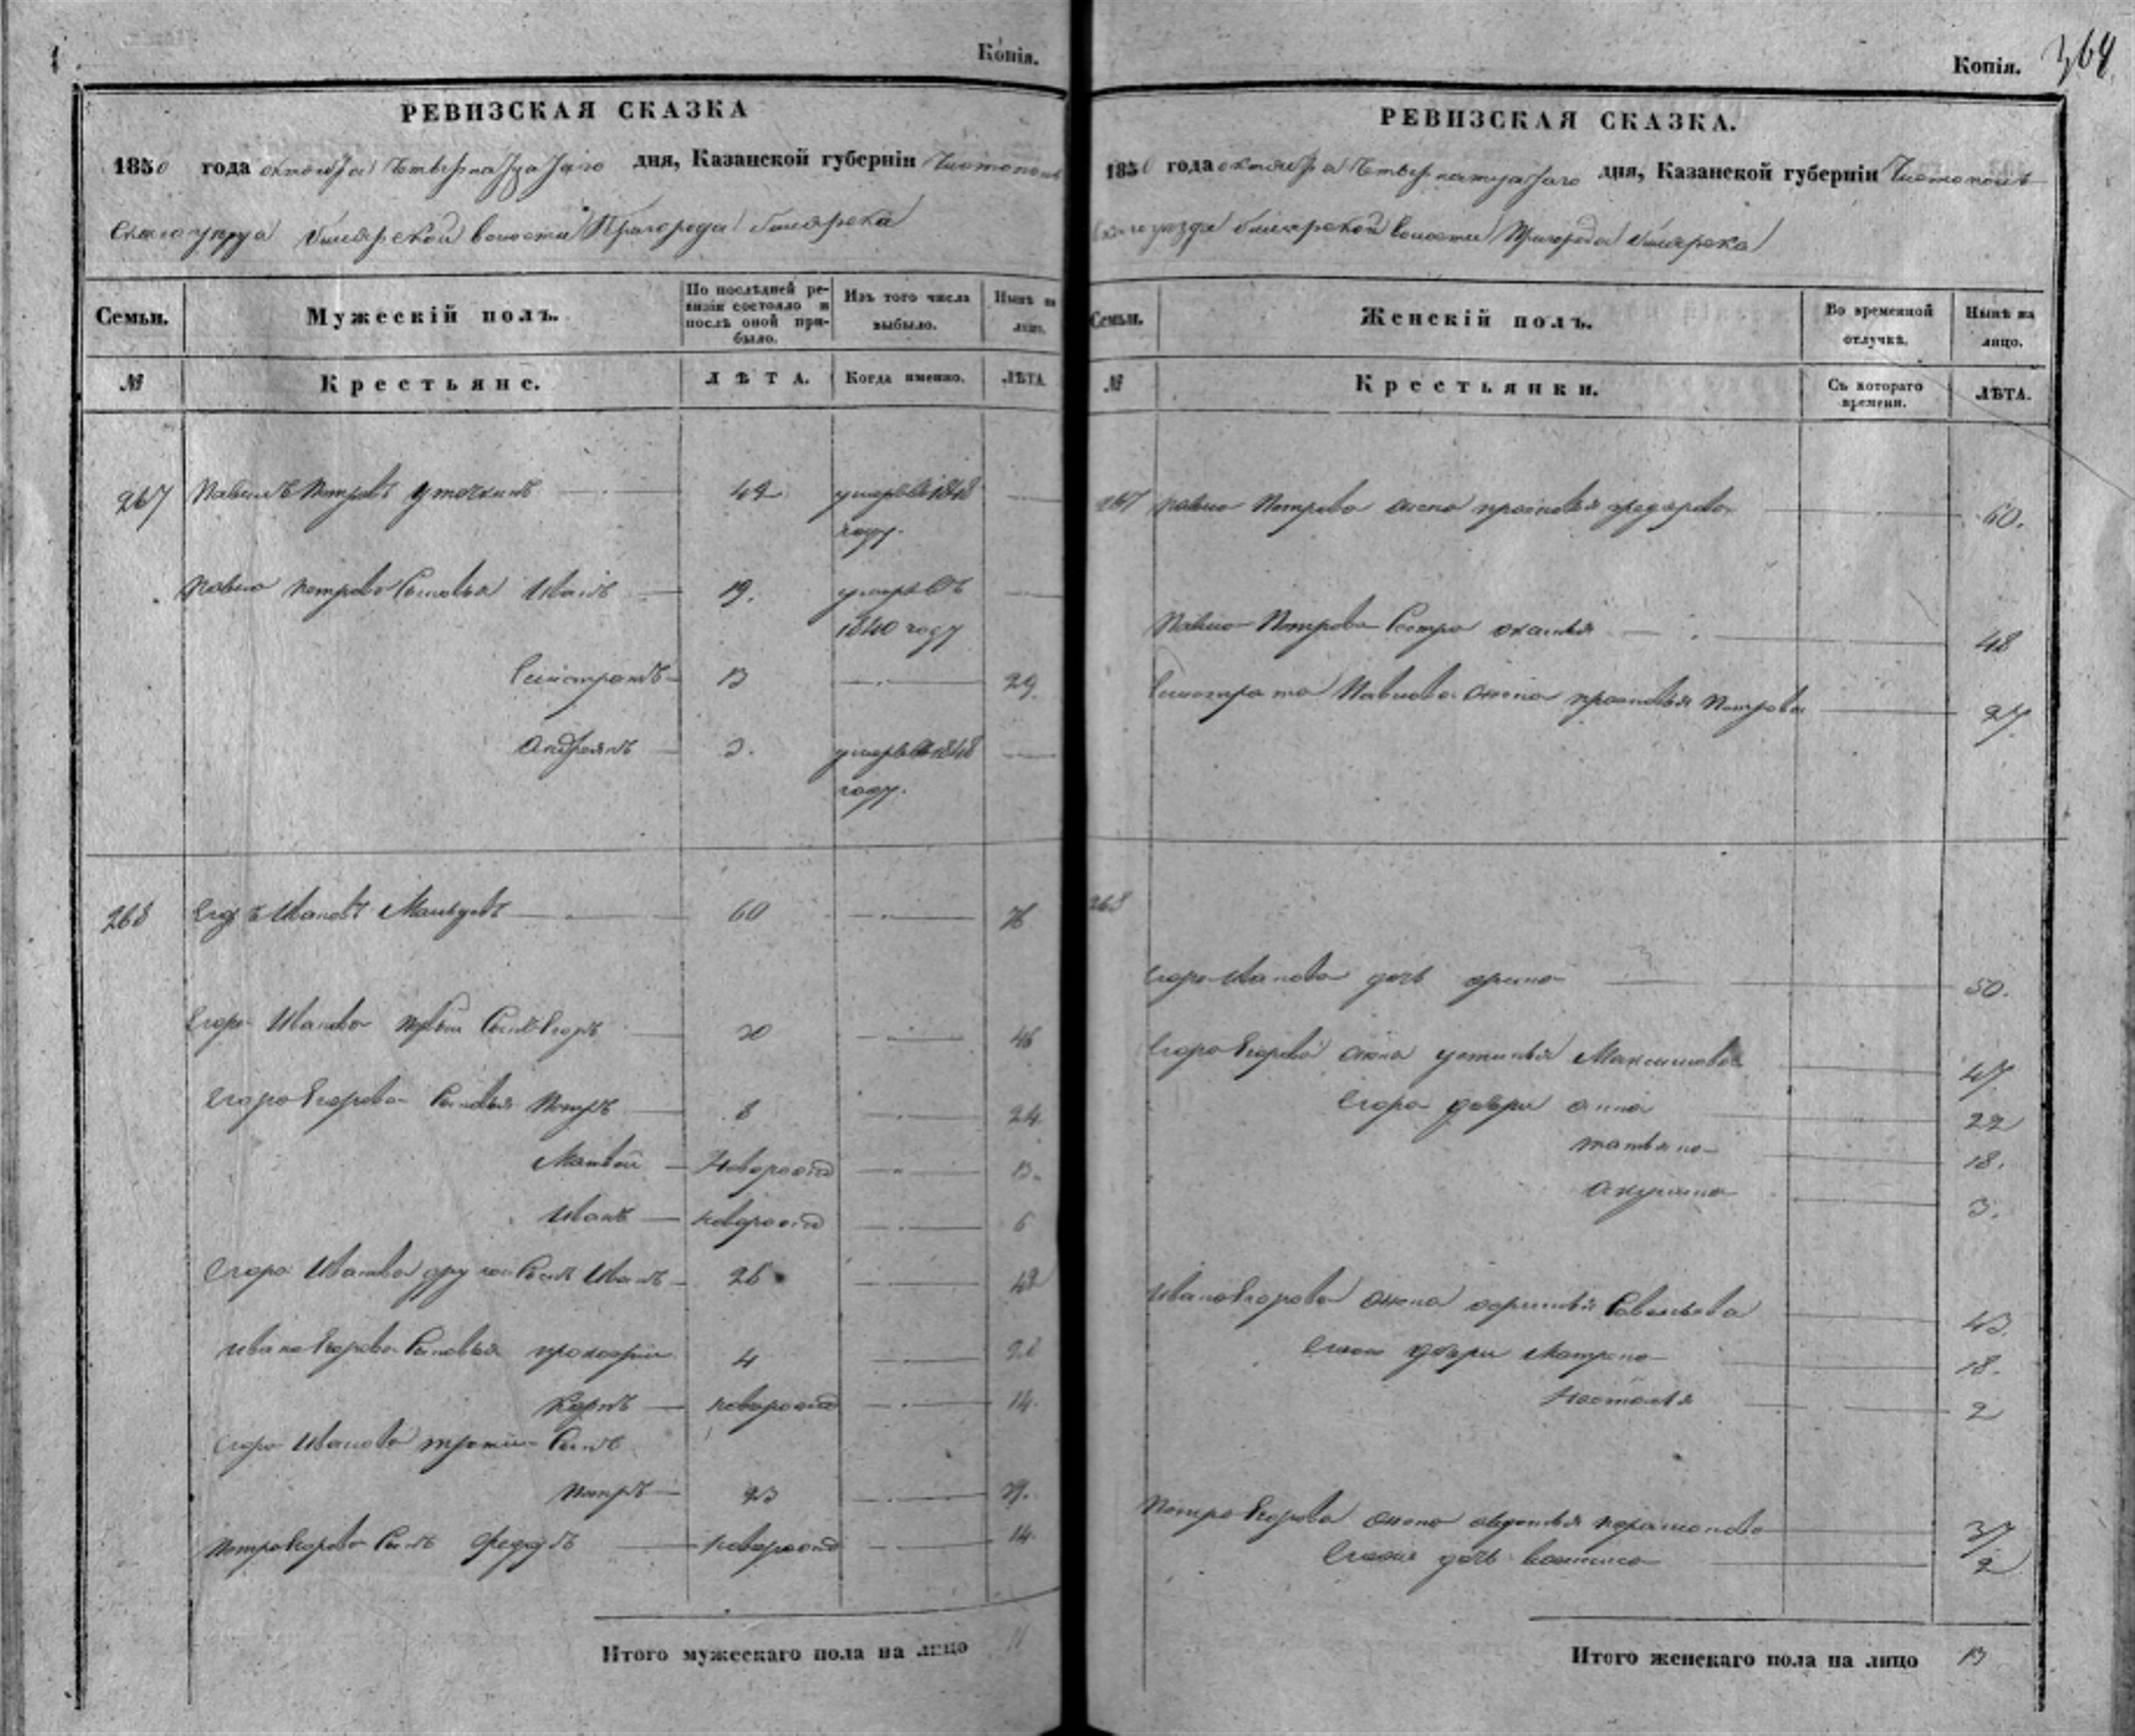 1
Копія.
РЕВИЗСКАЯ СКАЗКА
1850 года октября четвернадцатаго дня, Казанской губерніи Чистополь
скаго уезда Билярской волости Пригорода Билярска
Семьи.
Мужескій полъ.
По послѣдней ре-
визіи состояло и
послѣ оной при-
было.
Изъ того числа
выбыло.
Нынѣ на
лицо.
№
Крестьяне.
ЛѢТА.
Когда именно.
ЛѢТА.
267 Павелъ Петровъ Уточкинъ 42 умеръ въ 1848
году.
Павла Петрова Сыновья Иванъ 19. умеръ въ
1840 году
13 29.
Андреянъ 3. умеръ въ 1848
году.
268 Егоръ Ивановъ 60 76
Егора Иванова первый Сынъ Егоръ 30 46
Егора Егорова Сыновья Петръ 8 24.
Матвей Новорожд 13.
Иванъ новорожд 6
Егора Иванова другой Сынъ Иванъ 26 42
Ивана Егорова Сыновья 4
Карпъ новорожд 14.
Егора Иванова третий Сынъ
Петръ 23 39.
Петра Егорова Сынъ Федулъ новорожд 14.
Итого мужескаго пола на лицо 11
Копія. 364
РЕВИЗСКАЯ СКАЗКА.
1850 года октября четвернатцатаго дня, Казанской губерніи Чистополь
скаго уезда Билярской волости Пригорода Билярска
Семьи.
Женскій полъ.
Во временной
отлучкѣ.
Нынѣ на
лицо.
№
Крестьянки.
Съ котораго
времени.
ЛѢТА.
267 Павла Петрова жена прасковья 60.
Павла Петрова Сестра 48
Павлова жена прасковья Петрова 27
268
Егора Иванова дочь арина 50.
Егора Егорова жена устинья Максимова 47
Егора дочери анна 22
татьяна 18.
акулина 3.
Ивана Егорова жена Савельева 43.
Ихъ дочери Матрена 18.
Настасья 2
Петра Егорова жена авдотья 37
дочь 2
Итого женскаго пола на лицо 13